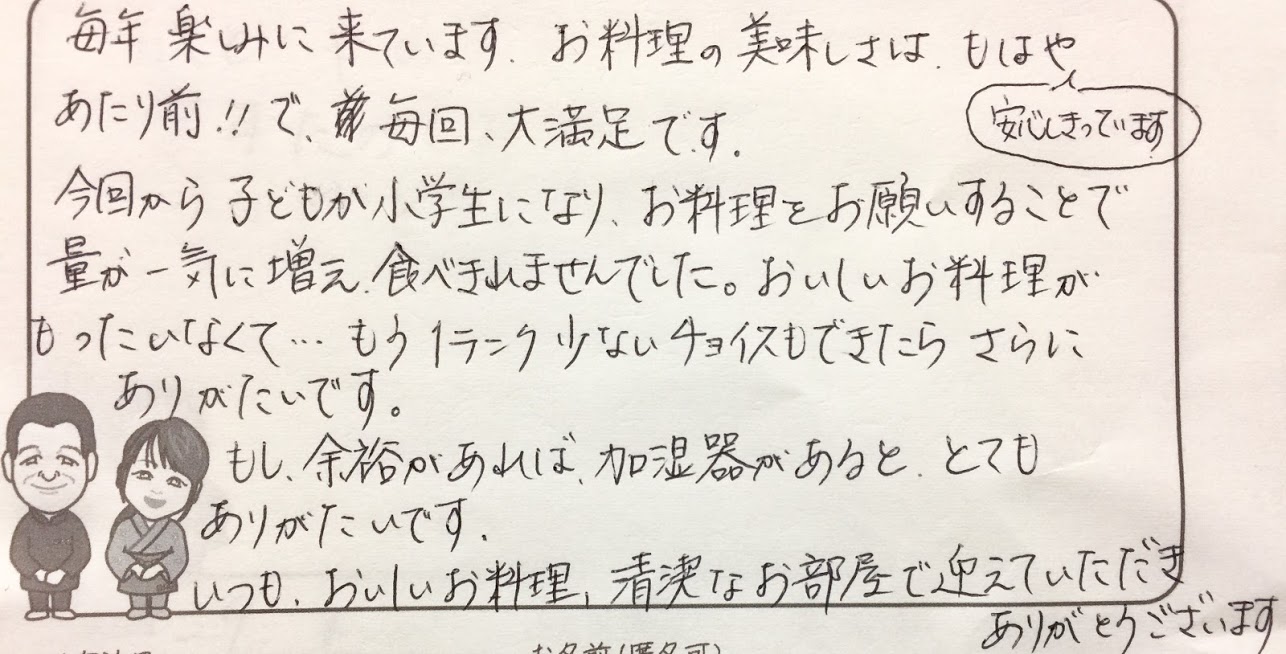 毎年 楽しみに 来ています. お料理の 美味しさは. もはや
安心しきっています
あたり前!!で、毎回、大満足です.
今回から 子どもが小学生になり、お料理をお願いすることで
量が一気に増え、食べきれませんでした。おいしいお料理が
もったいなくて… もう 1ランク 少ないチョイスもできたら さらに
ありがたいです。
もし、余裕があれば、加湿器があると、とても
ありがたいです.
いつも、おいしいお料理、清潔なお部屋で迎えていただき
ありがとうございます
お名前(匿名可)